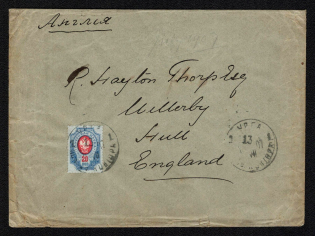 Англия
R. Hayton Thorp Esq
Willerby
Hull
England
20
УРГА
13